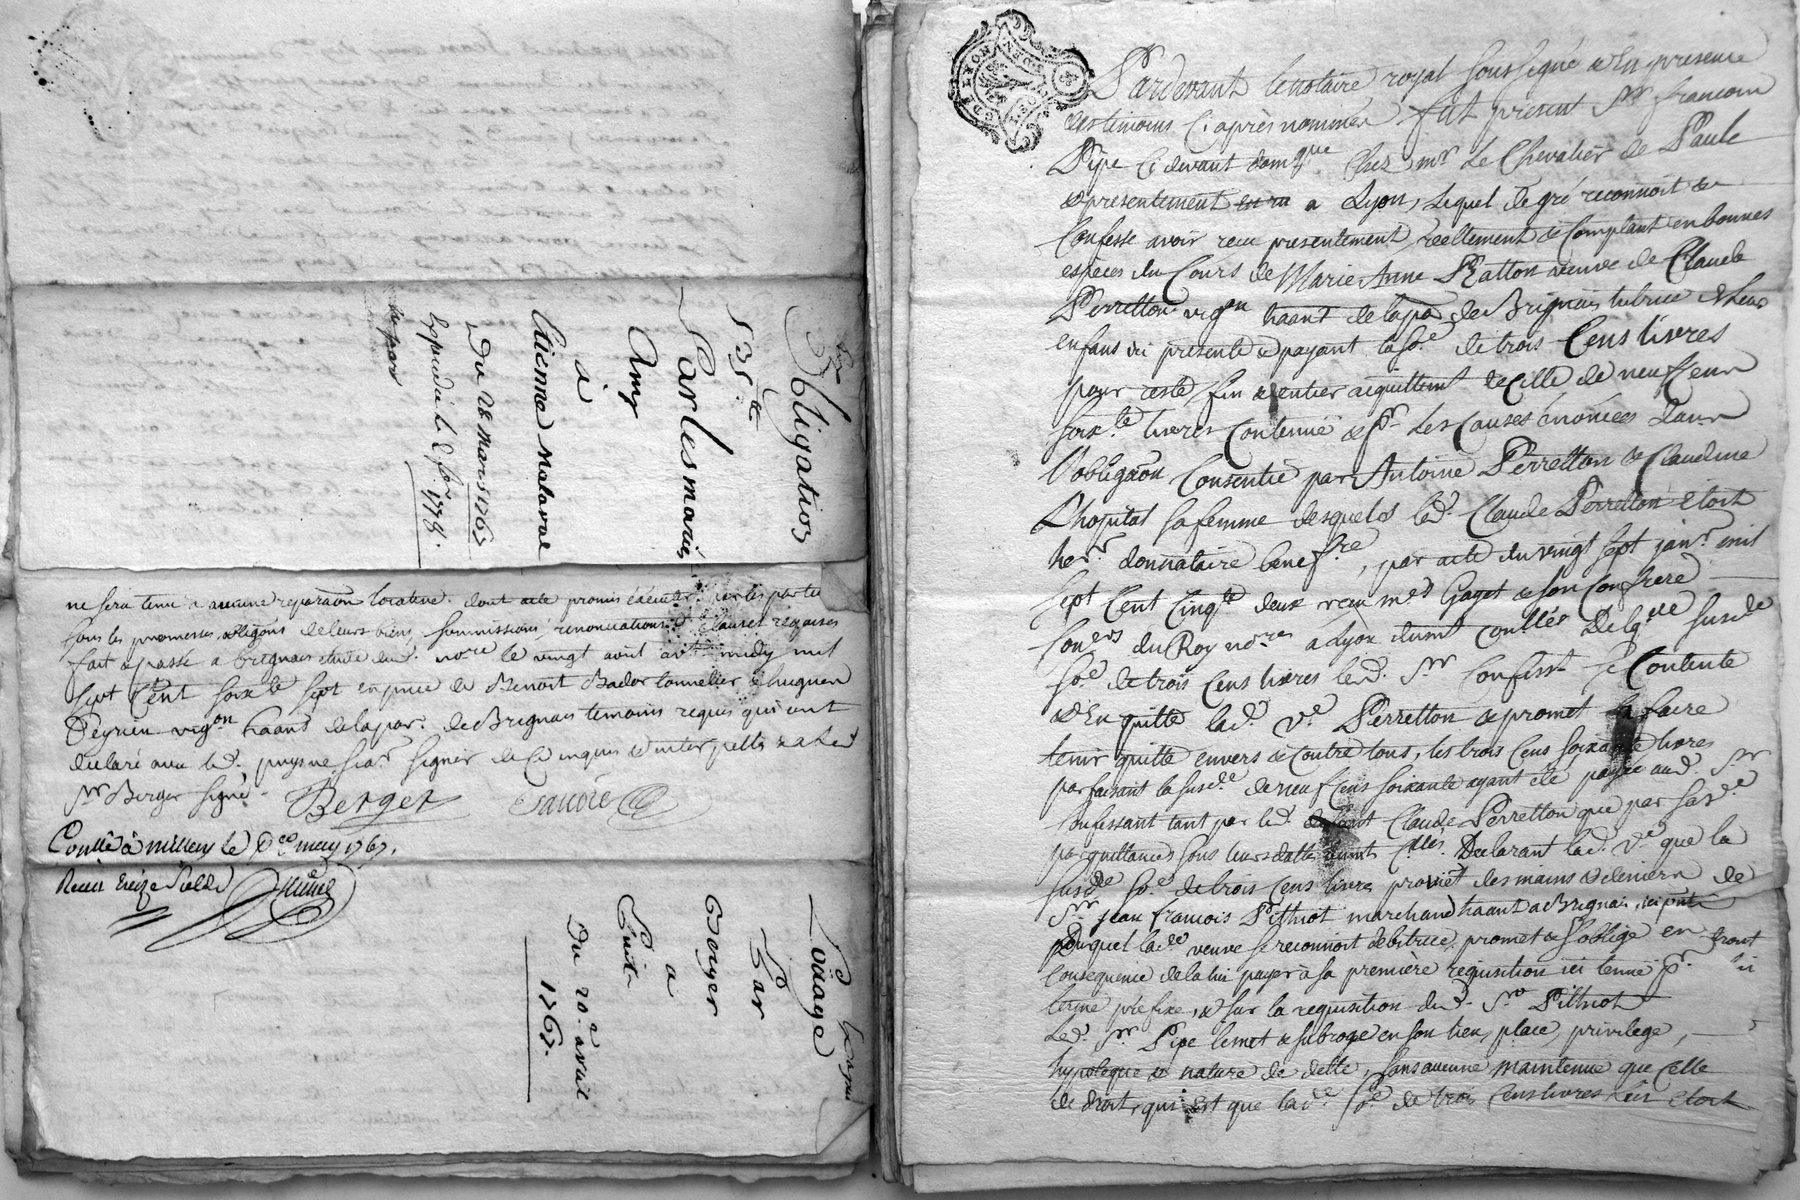 Obligation
535tt
Par les mariés
Amy
a
Etienne Malaval
Du 28 Mars 1767
Expédié le
1778.
ne sera tenu a aucune reparation locative. dont acte promis executer par les parties
sous les promesses, obligons de leurs biens, soumissions, renonciations & clauses requises
fait & passé a Brignais etude dud. nore le vingt avril avt midy mil
sept cent soixte sept en pnce de Benoit Bador tonnelier & huguen
Peyrieu vigon haant de la par. de Brignais temoins requis qui ont
declaré avec led. ne sçar signer de ce enquis & interpellés & a led
Sr Berger signé
Berger
Conllé à millery le may 1767.
Receu treize sols
Loüage
Par
Berger
a
Du 20e avril
1767.
Pardevant le notaire royal soussigné & En presence
des temoins Ci après nommés fut present Sr francois
Pipe Ci devant domque Chez mr Le Chevalier de Paule
& presentement a Lyon, Lequel de gré reconnoit &
Confesse avoir recu presentement, réellement & Comptant en bonnes
especes du Cours de Marie Anne Ratton veuve de Claude
Perretton vigon haant de la par de Brignais tutrice de leurs
enfans ici presente & payant la so.e de trois Cens livres
pour reste, fin & entier aquittemt de Celle de neuf cens
soixte livres Contenuë & pr Les Causes énoncées dans
l'obligaôn Consentie par Antoine Perretton & Claudine
Lhopital sa femme desquels led. Claude Perretton étoit
her.r donnataire benef.re, par acte du vingt sept janr mil
sept Cent Cinqte deux receu me Gayet & son Confrere
Conrs du Roy nores a Lyon dumt conllés De lqle susde
so.e de trois Cens livres led. Sr Confesst se Contente
& En quitte lad. ve Perretton & promet la faire
tenir quitte envers & Contre tous, les trois Cens soixante livres
parfaisant la susde de neuf Cens soixante ayant été payée aud. Sr
Confessant tant par led. Claude Perretton que par sa de
par quittances sous leurs dattes Declarant lad. ve que la
susde so.e de trois Cens livres provient des mains & deniers de
Sr jean francois Pithiot marchand haant a Brignais, ici pnt
Duquel lade veuve se reconnoit debitrice, promet & s'oblige en
Consequence de la lui payer à sa premiere requisition ici tenuë pr
terme préfixe, & sur la requisition dud. Sr Pithiot
Led. Sr Pipe le met & subroge en son lieu, place, privilege,
hypoteque & nature de dette, sans aucune maintenue que Celle
de droit, qui est que lade so.e de trois Cens livres lui etoit